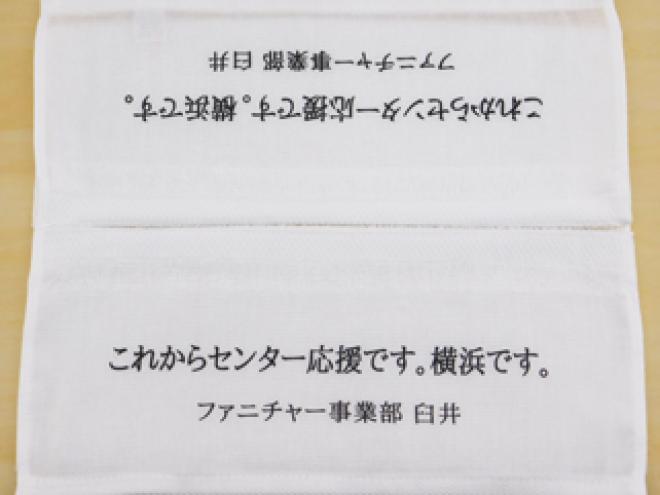 ファニチャー事業部 臼井
これからセンター応援です。横浜です。
これからセンター応援です。横浜です。
ファニチャー事業部 臼井